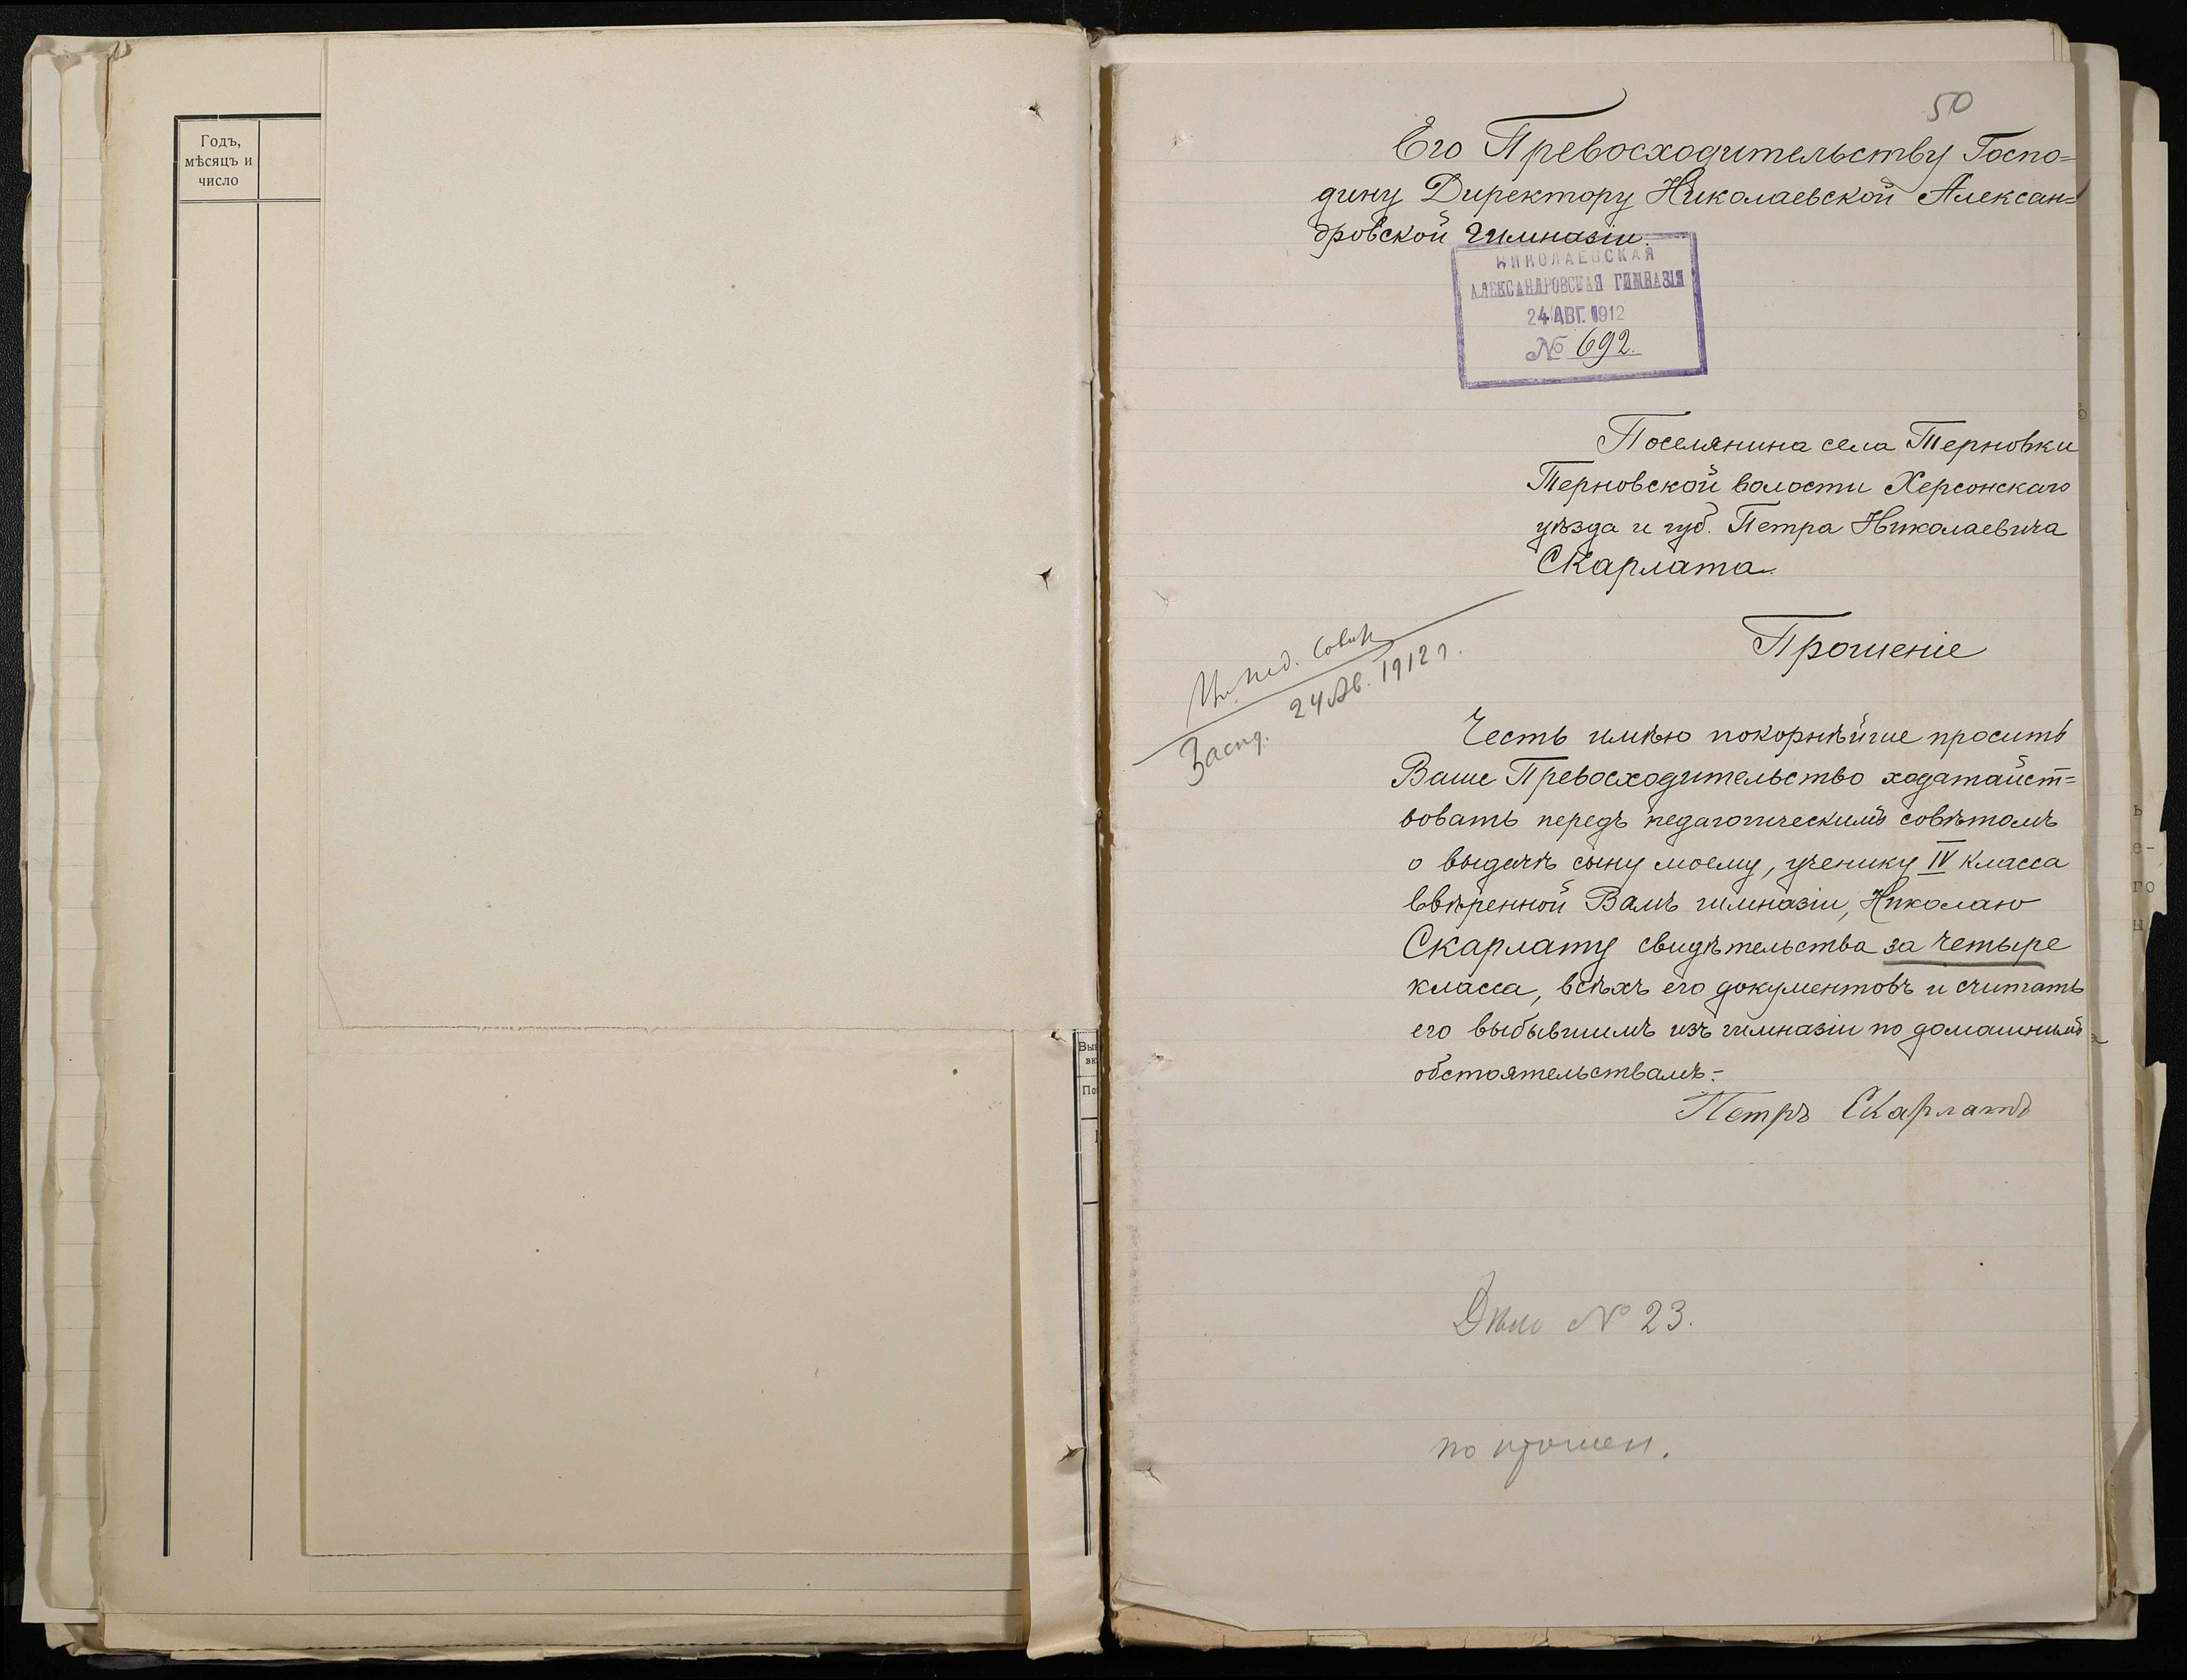 Годъ,
мѣсяцъ и
число
50
Его Превосходительству Госпо=
дину Директору Николаевской Алексан=
дровской Гимназіи.
НИКОЛАЕВСКАЯ
АЛЕКСАНДРОВСКАЯ ГИМНАЗІЯ
24 АВГ. 1912
№ 692.
Поселянина села Терновки
Терновской волости Херсонскаго
уѣзда и губ. Петра Николаевича
Скарлата.
Прошеніе
Пед. Совѣт
Засѣд. 24 Ав. 1912 г.
Честь имѣю покорнѣйше просить
Ваше Превосходительство ходатайст=
вовать передъ педагогическимъ совѣтомъ
о выдачѣ сыну моему, ученику IV класса
ввѣренной Вамъ гимназіи, Николаю
Скарлату свидѣтельства за четыре
класса, всѣхъ его документовъ и считать
его выбывшимъ изъ гимназіи по домашнимъ
обстоятельствамъ.-
Петръ Скарлатъ
Дѣло № 23.
по прошен.